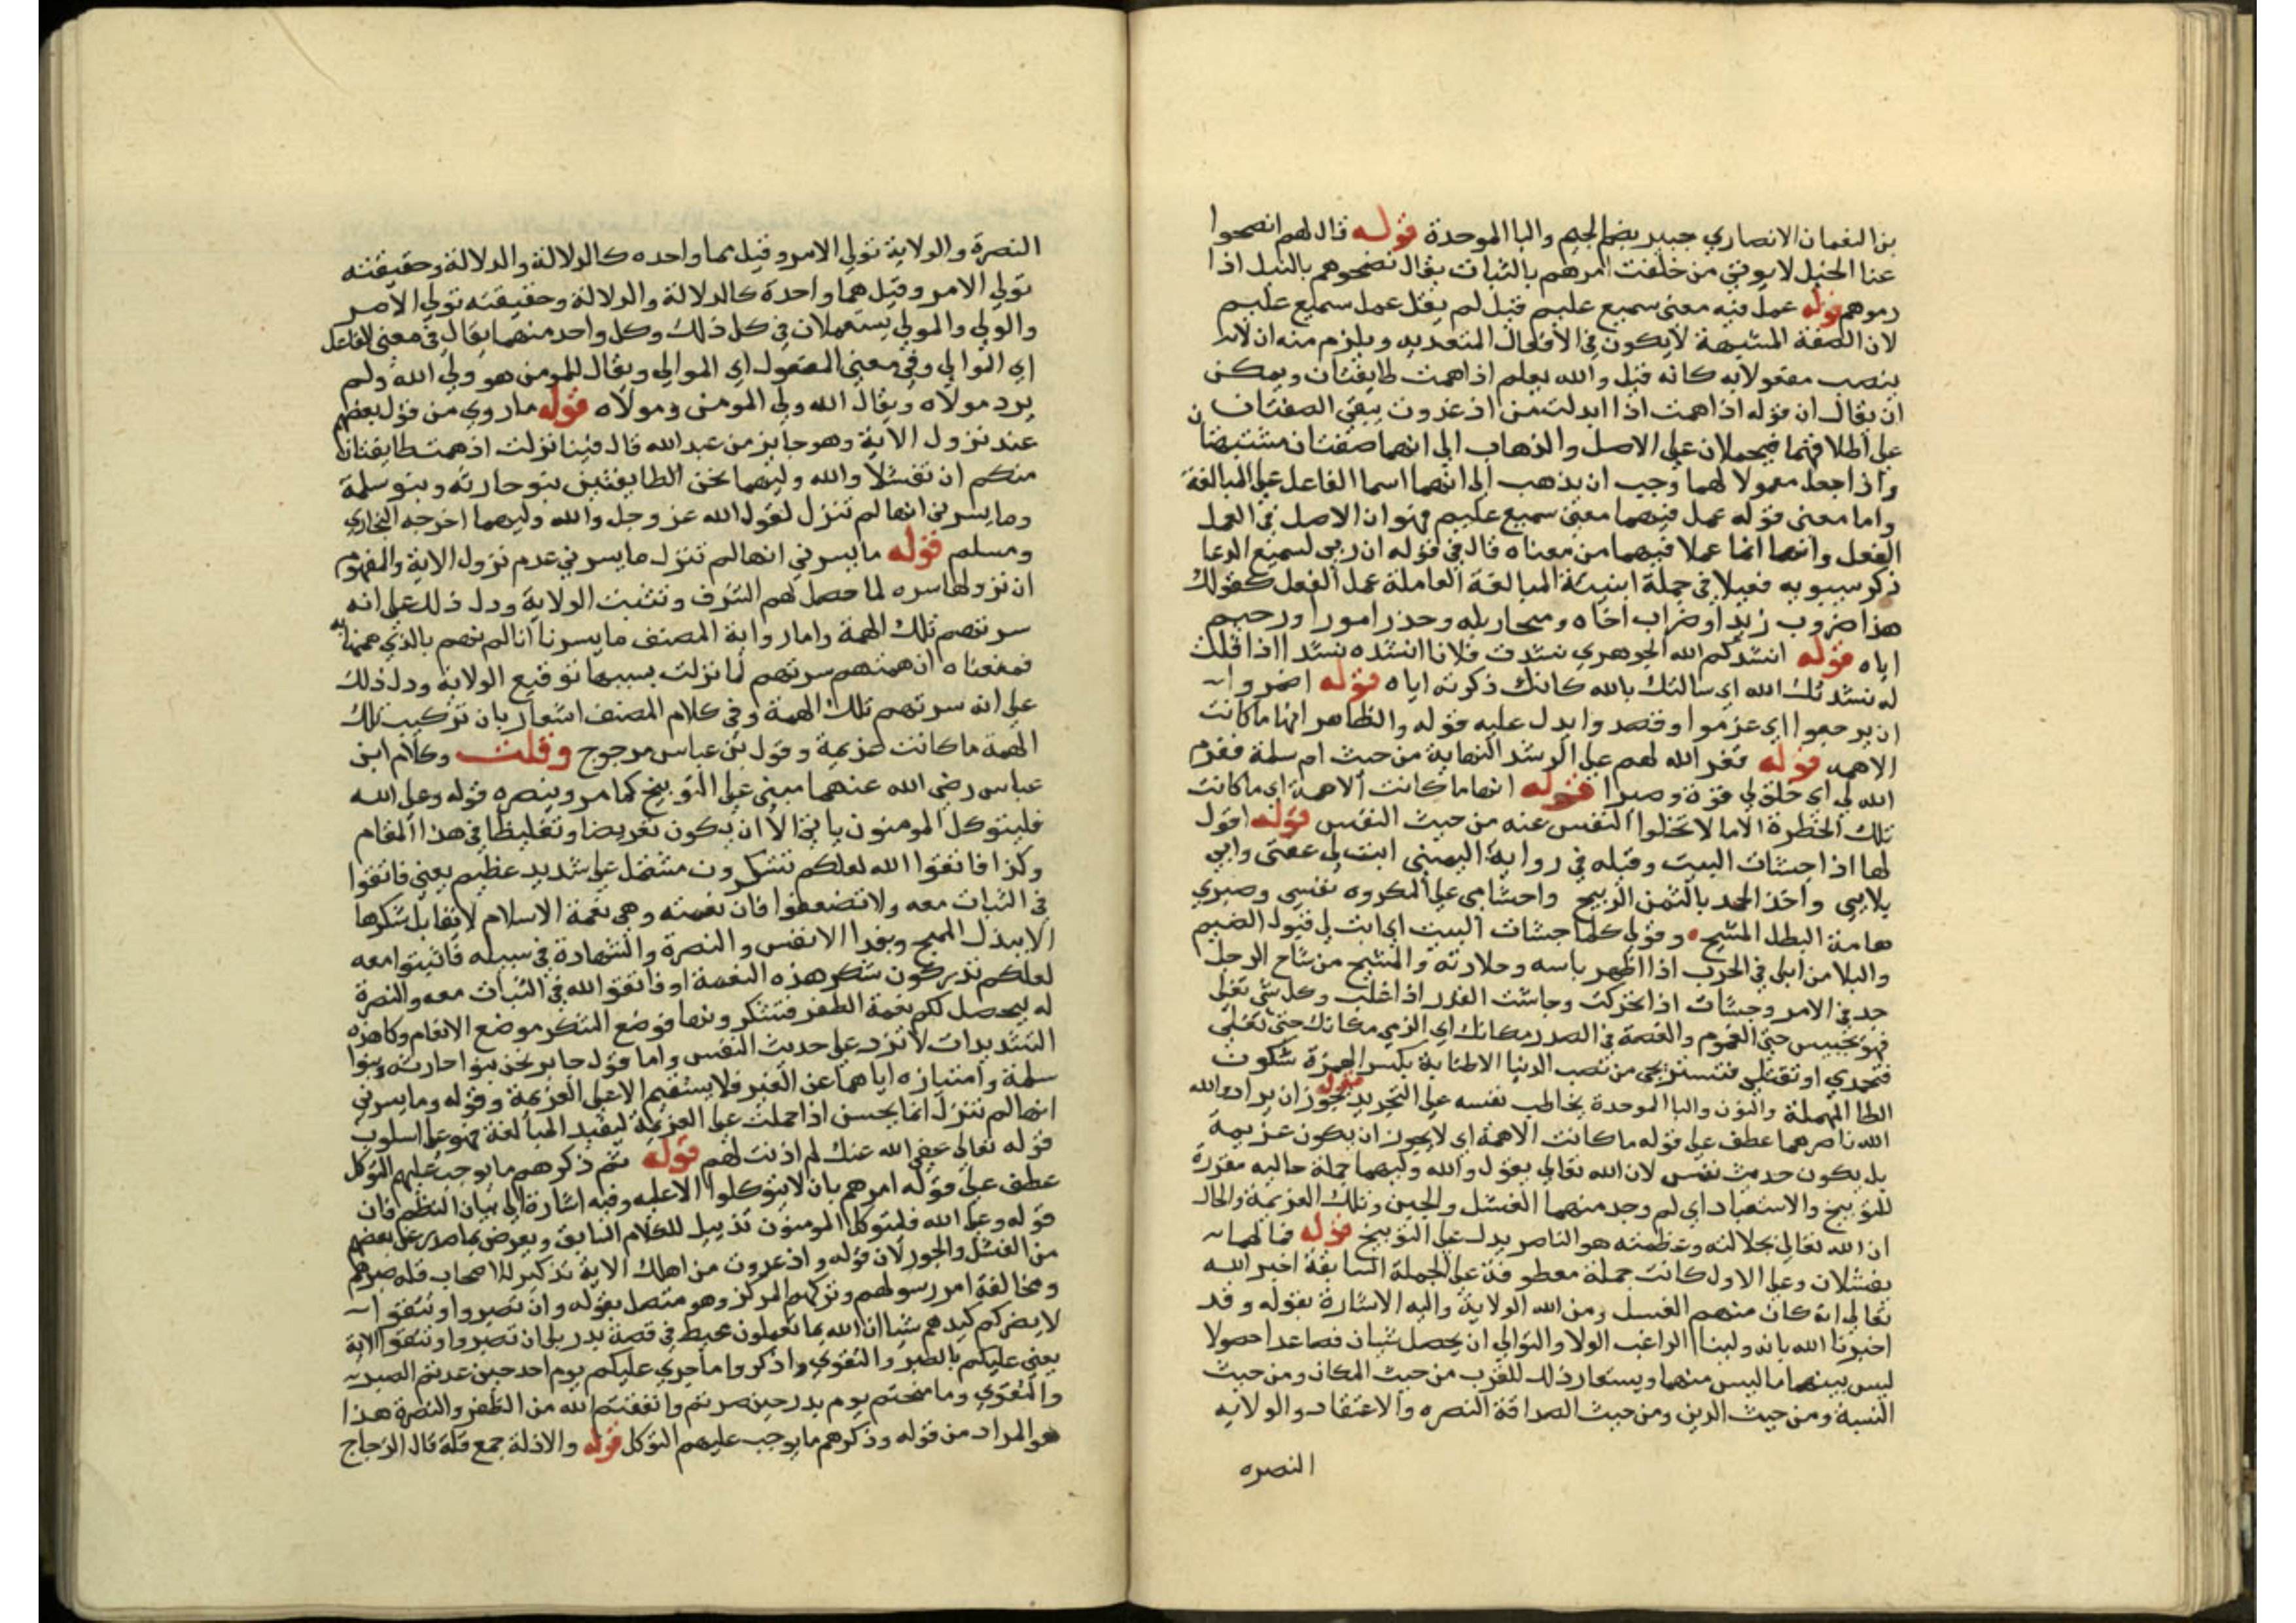 بن النعمان الانصاري جبير بضم الجيم والبا الموحدة قوله قال لهم انضحوا
عنا الخيل لا يوتى من خلفنا امرهم بالثبات يقال نضحوهم بالنبل اذا
رموهم قوله عمل فيه معنى سميع عليم قيل لم يقل عمل سميع عليم
لان الصفة المشبهة لا يكون في الافعال المتعديه ويلزم منه ان لا
ينصب مفعولا به كانه قيل والله يعلم اذ اهمت طايفتان ويمكن
ان يقال ان قوله اذا همت اذا ابدلت من اذ غدوت يبقى الصفتان
على اطلاقهما فيحملان على الاصل والذهاب الى انهما صفتان مشتبهتان
واذا جعل معمولا لهما وجب ان يذهب الى انهما اسما الفاعل على المبالغة
واما معنى قوله عمل فيهما معنى سميع عليم فهو ان الاصل في العمل
الفعل وانهما انما عملا فيهما من معناه قال في قوله ان ربي لسميع الدعا
ذكر سيبويه فعيلا في جملة ابنية المبالغة العاملة عمل الفعل كقولك
هذا ضروب زيدا وضراب اخاه ومنحار ابله وحذر امورا ورحيم
اياه قوله انشدكم الله الجوهري نشدت فلانا انشده نشدا اذا قلت
له نشدتك الله اي سالتك بالله كانك ذكرته اياه قوله اضمروا
ان يرجعوا اي عزموا وقصدوا يدل عليه قوله والظاهر انها ما كانت
الاهمه قوله فعزم الله لهم على الرشد النهاية من حيث ام سلمة فعزم
الله لي اي خلق لي قوة وصبرا قوله انها ما كانت الاهمة اي ما كانت
تلك الخطرة الا ما لا تخلوا النفس عنه من حيث النفس قوله اقول
لها اذا جشات البيت وقبله في رواية اليمنى ابت لي عفتى وابى
بلايى واخذ الحمد بالثمن الربيح واحشامى على المكروه نفسى وضربي
هامة البطل المشيح وقولي كلما جشات البيت اي ابت لي قبول الضيم
والبلا من ابلى في الحرب اذا اظهر باسه وجلادته والمشيح من شاح الرجل
جد في الامر وجشات اذا تحركت وجاشت القدر اذا غلت وكل شي تغلى
فهو يجيش حتى الهموم والغصة في الصدر مكانك اي الزمي مكانك حتى تغلبي
فتحمدي او تقتلى فتستريحى من نصب الدنيا الاطنابة بكسر الهمزة سكون
الطا المهملة والنون والبا الموحدة يخاطب نفسه على التجريد قوله يجوز ان يراد والله
الله ناصرهما عطف على قوله ما كانت الاهمة اي لا يجوز ان يكون عزيمة
بل يكون حديث نفس لان الله تعالى يقول والله وليهما جملة حاليه مقررة
للتوبيخ والاستبعاد اي لم وجد منهما الفشل والجبن وتلك العزيمة والحال
ان الله تعالى بجلالته وعظمته هو الناصر يدل على التوبيخ قوله فما لهما
يفشلان وعلى الاول كانت جملة معطوفة على الجملة السابقة اخبر الله
تعالى انه كان منهم الفشل ومن الله الولاية واليه الاشارة بقوله وقد
اخبرنا الله بانه ولينا الراغب الولا والتوالي ان يحصل شيان فصاعدا حصولا
ليس بينهما ما ليس منهما ويستعار ذلك للقرب من حيث المكان ومن حيث
النسبة ومن حيث الدين ومن حيث الصداقة النصره والاعتقاد والولايه
النصره
النصرة والولاية تولي الامر وقيل هما واحده كالدلالة والدلالة وحقيقته
تولي الامر وقيل هما واحدة كالدلالة والدلالة وحقيقته تولي الامر
والولي والمولي يستعملان في كل ذلك وكل واحد منهما يقال في معنى الفاعل
اي الموالي وفي معنى المفعول اي الموالي ويقال للمومن هو ولي الله ولم
يرد مولاه ويقال الله ولي المومن ومولاه قوله ما روي من قول بعضهم
عند نزول الاية وهو جابر من عبد الله قال فينا نزلت اذ همت طايفتان
منكم ان تفشلا والله وليهما نحن الطايفتين بنو حارثة وبنو سلمة
وما يسرني انها لم تنزل لقول الله عز وجل والله وليهما اخرجه البخاري
ومسلم قوله ما يسرني انها لم تنزل ما يسرني عدم نزول الاية والمفهوم
ان نزولها سره لما حصل لهم الشرف وتثبت الولاية ودل ذلك على انه
سرتهم تلك الهمة واما رواية المصنف ما يسرنا انا لم نهم بالذي هممنا به
فمعناه ان همتهم سرتهم لما نزلت بسببها توقيع الولاية ودل ذلك
على انه سرتهم تلك الهمة وفي كلام المصنف اشعار بان تركيب تلك
الهمة ما كانت عزيمة وقول بن عباس مرجوج وقلت وكلام ابن
عباس رضي الله عنهما مبنى على التوبيخ كما مر وينصره قوله وعلى الله
فليتوكل المومنون يابى الا ان يكون تعريضا وتغليظا في هذا المقام
وكذا فاتقوا الله لعلكم تشكرون مشتمل على شديد عظيم يعني فاتقوا
في الثبات معه ولا تضعفوا فان نعمته وهي نعمة الاسلام لا يقابل شكرها
الا ببذل المهج وبفدا الانفس والنصرة والشهادة في سبيله فاثبتوا معه
لعلكم تدركون شكر هذه النعمة او فاتقوا الله في الثبات معه والنصرة
له ليحصل لكم نعمة الظفر فتشكرونها فوضع الشكر موضع الانعام وكا هذه
التشديدات لا ترد على حديث النفس واما قول جابر نحن بنوا حارثه وبنوا
سلمة وامتيازه اياهما عن الغير فلا يستقيم الا على العزيمة وقوله وما يسرني
انها لم تنزل انما يحسن اذا حملت على العزيمة ليفيد المبالغة فهو على اسلوب
قوله تعالى عفى الله عنك لم اذنت لهم قوله ثم ذكرهم ما يوجب عليهم التوكل
عطف على قوله امرهم بان لا يتوكلوا الا عليه وفيه اشارة الى بيان النظم فان
قوله وعلى الله فليتوكل المومنون تذييل للكلام السابق ويعرض بما صدر عن بعضهم
من الفشل والجور لان قوله واذ غدوت من اهلك الاية تذكير لاصحاب قله صبرهم
ومخالفة امر رسولهم وتركهم المركز وهو متصل بقوله وان تصبروا وتتقوا
لا يضركم كيدهم شيا ان الله بما تعملون محيط في قصة بدر بلى ان تصبروا وتتقوا الاية
يعني عليكم بالصبر والتقوى واذكروا ما جرى عليكم يوم احد حين عدمتم الصبر
والتقوى وما منحتم يوم بدر حين صبرتم واتقيتم الله من الظفر والنصرة هذا
هو المراد من قوله وذكرهم ما يوجب عليهم التوكل قوله والاذلة جمع قلة قال الزجاج